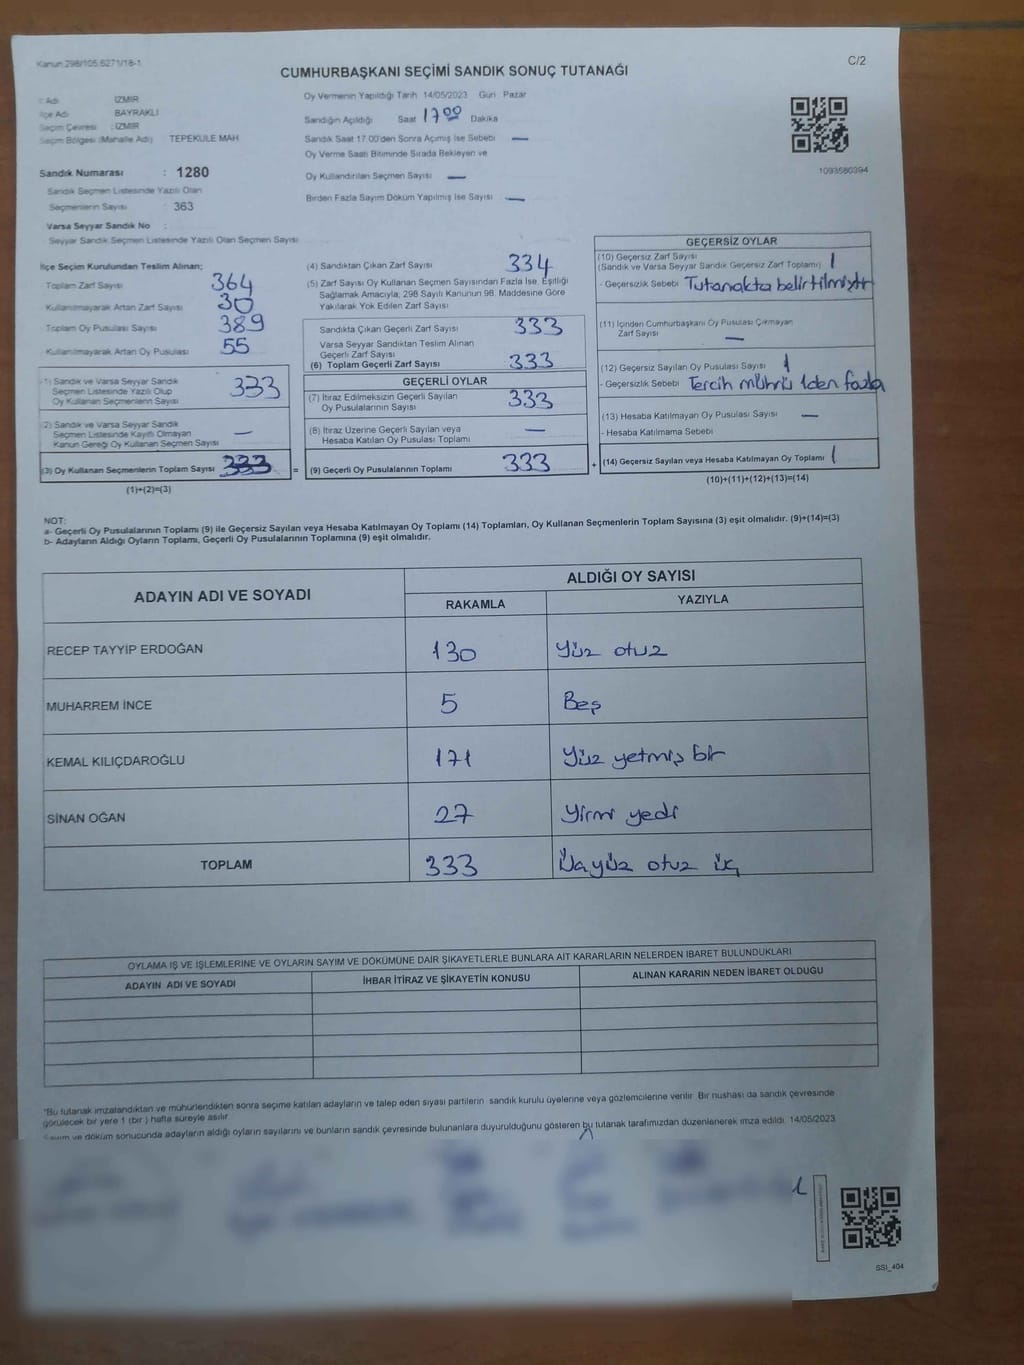 Kanun 298/105,6271/18-1
C/2
CUMHURBAŞKANI SEÇİMİ SANDIK SONUÇ TUTANAĞI
İl Adı İZMİR
İlçe Adı BAYRAKLI
Seçim Çevresi : İZMİR
Seçim Bölgesi (Mahalle Adı) TEPEKULE MAH
Sandık Numarası : 1280
Sandık Seçmen Listesinde Yazılı Olan
Seçmenlerin Sayısı : 363
Varsa Seyyar Sandık No :
Seyyar Sandık Seçmen Listesinde Yazılı Olan Seçmen Sayısı
Oy Vermenin Yapıldığı Tarih 14/05/2023 Gün Pazar
Sandığın Açıldığı Saat 17 00 Dakika
Sandık Saat 17.00'den Sonra Açılmış İse Sebebi —
Oy Verme Saati Bitiminde Sırada Bekleyen ve
Oy Kullandırılan Seçmen Sayısı —
Birden Fazla Sayım Döküm Yapılmış İse Sayısı —
1093580394
İlçe Seçim Kurulundan Teslim Alınan;
Toplam Zarf Sayısı 364
Kullanılmayarak Artan Zarf Sayısı 30
Toplam Oy Pusulası Sayısı 389
Kullanılmayarak Artan Oy Pusulası 55
(1) Sandık ve Varsa Seyyar Sandık
Seçmen Listesinde Yazılı Olup
Oy Kullanan Seçmenlerin Sayısı 333
(2) Sandık ve Varsa Seyyar Sandık
Seçmen Listesinde Kayıtlı Olmayan
Kanun Gereği Oy Kullanan Seçmen Sayısı —
(3) Oy Kullanan Seçmenlerin Toplam Sayısı 333 =
(1)+(2)=(3)
(4) Sandıktan Çıkan Zarf Sayısı 334
(5) Zarf Sayısı Oy Kullanan Seçmen Sayısından Fazla İse, Eşitliği
Sağlamak Amacıyla; 298 Sayılı Kanunun 98. Maddesine Göre
Yakılarak Yok Edilen Zarf Sayısı
Sandıkta Çıkan Geçerli Zarf Sayısı 333
Varsa Seyyar Sandıktan Teslim Alınan
Geçerli Zarf Sayısı
(6) Toplam Geçerli Zarf Sayısı 333
GEÇERLİ OYLAR
(7) İtiraz Edilmeksizin Geçerli Sayılan
Oy Pusulalarının Sayısı 333
(8) İtiraz Üzerine Geçerli Sayılan veya
Hesaba Katılan Oy Pusulası Toplamı —
(9) Geçerli Oy Pusulalarının Toplamı 333 +
GEÇERSİZ OYLAR
(10) Geçersiz Zarf Sayısı
(Sandık ve Varsa Seyyar Sandık Geçersiz Zarf Toplamı) 1
- Geçersizlik Sebebi Tutanakta belirtilmiştir
(11) İçinden Cumhurbaşkanı Oy Pusulası Çıkmayan
Zarf Sayısı —
(12) Geçersiz Sayılan Oy Pusulası Sayısı 1
- Geçersizlik Sebebi Tercih mührü 1den fazla
(13) Hesaba Katılmayan Oy Pusulası Sayısı —
- Hesaba Katılmama Sebebi
(14) Geçersiz Sayılan veya Hesaba Katılmayan Oy Toplamı 1
(10)+(11)+(12)+(13)=(14)
NOT:
a- Geçerli Oy Pusulalarının Toplamı (9) ile Geçersiz Sayılan veya Hesaba Katılmayan Oy Toplamı (14) Toplamları, Oy Kullanan Seçmenlerin Toplam Sayısına (3) eşit olmalıdır. (9)+(14)=(3)
b- Adayların Aldığı Oyların Toplamı, Geçerli Oy Pusulalarının Toplamına (9) eşit olmalıdır.
ADAYIN ADI VE SOYADI ALDIĞI OY SAYISI
RAKAMLA YAZIYLA
RECEP TAYYİP ERDOĞAN 130 Yüz otuz
MUHARREM İNCE 5 Beş
KEMAL KILIÇDAROĞLU 171 Yüz yetmiş bir
SİNAN OĞAN 27 Yirmi yedi
TOPLAM 333 Üçyüz otuz üç
OYLAMA İŞ VE İŞLEMLERİNE VE OYLARIN SAYIM VE DÖKÜMÜNE DAİR ŞİKAYETLERLE BUNLARA AİT KARARLARIN NELERDEN İBARET BULUNDUKLARI
ADAYIN ADI VE SOYADI İHBAR İTİRAZ VE ŞİKAYETİN KONUSU ALINAN KARARIN NEDEN İBARET OLDUĞU
*Bu tutanak imzalandıktan ve mühürlendikten sonra seçime katılan adayların ve talep eden siyasi partilerin sandık kurulu üyelerine veya gözlemcilerine verilir. Bir nüshası da sandık çevresinde
görülecek bir yere 1 (bir ) hafta süreyle asılır.
Sayım ve döküm sonucunda adayların aldığı oyların sayılarını ve bunların sandık çevresinde bulunanlara duyurulduğunu gösteren bu tutanak tarafımızdan düzenlenerek imza edildi. 14/05/2023
SSI_404